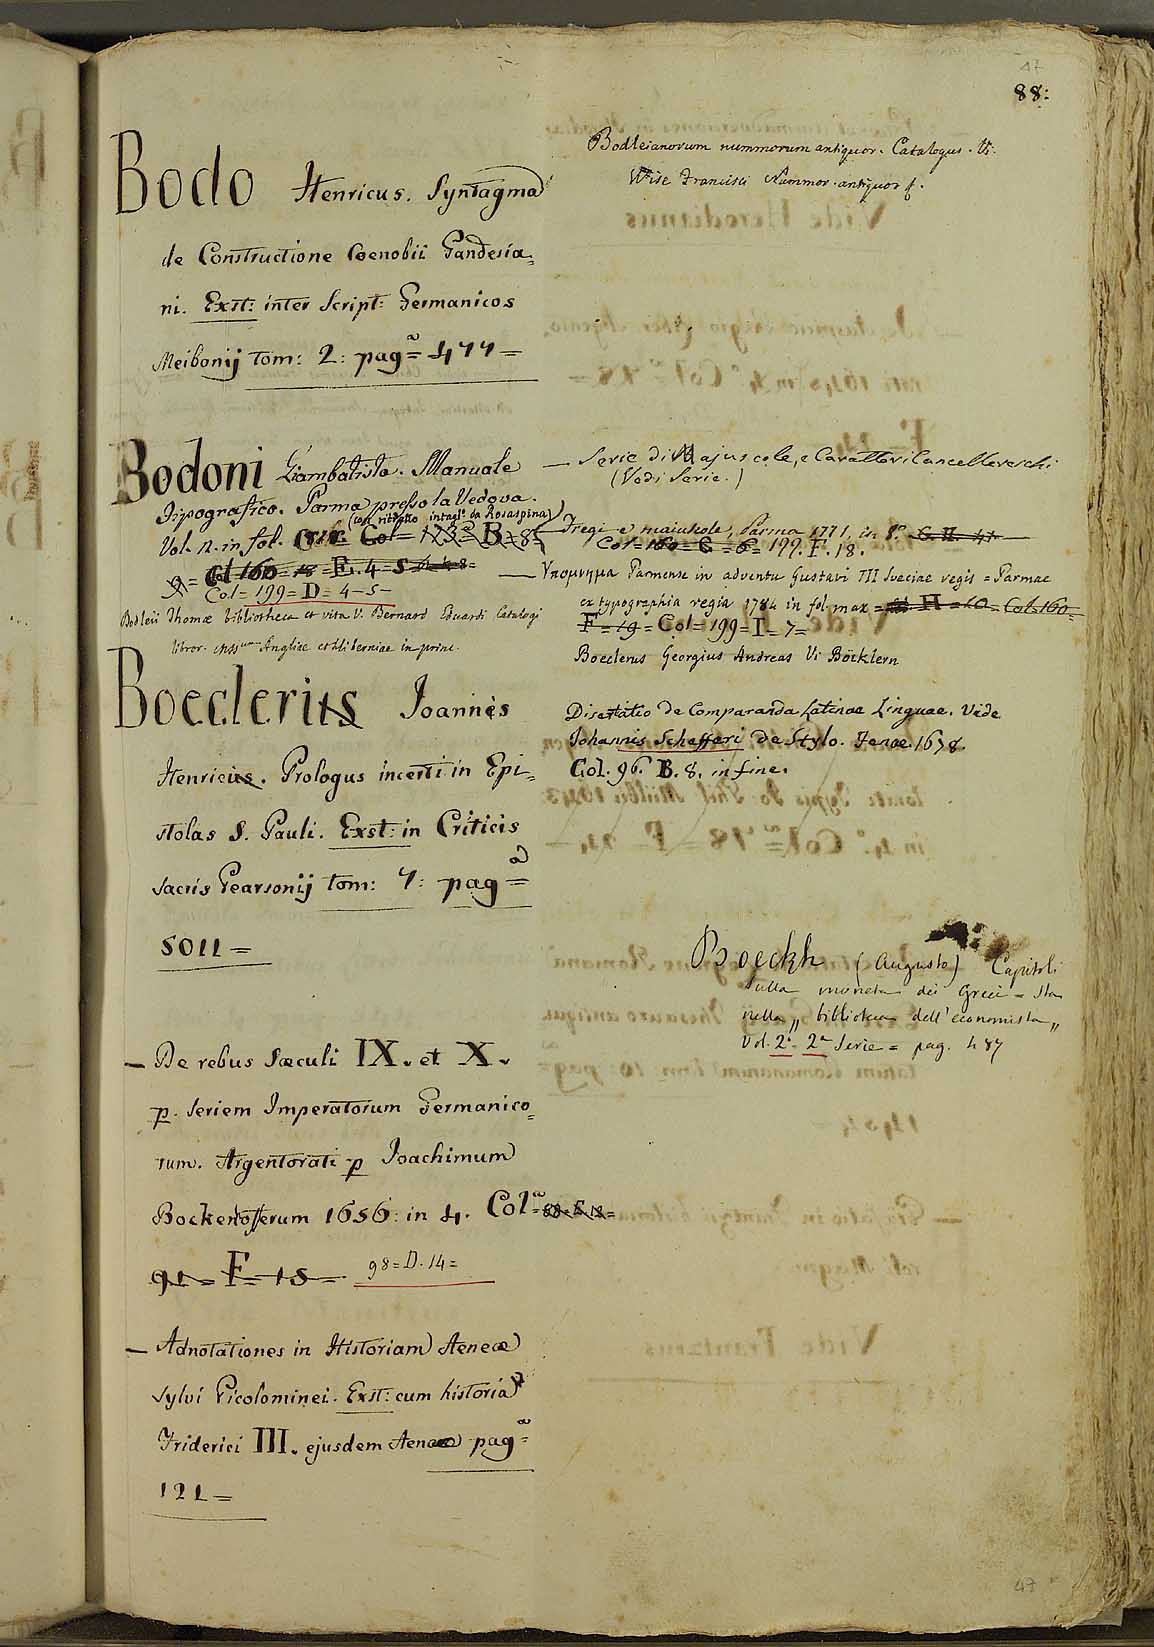 47
88:
Bodo Henricus. Syntagma
de Constructione Coenobii Gandesia=
ni. Exst: inter Script: Germanicos
Meibonij tom: 2: pag=a 477=
Bodoni Giambatista. Manuale
Tipografico. Parma presso la Vedova.
(con ritratto intagl.o da Rosaspina)
Vol. 2. in fol. 1818. Col=123= B=8=
9= Col 160=18=E. 4=5
Col=199=D=4-5-
Bodleii Thomae bibliotheca et vita V. Bernard Eduardi Catalogi
libror. mssum Angliae et Hiberniae in princ.
Boeclerius Joannes
Henricus. Prologus incerti in Epi=
stolas S. Pauli. Exst: in Criticis
sacris Pearsonij tom: 7: pag=a
5011=
— De rebus sæculi IX. et X.
p. seriem Imperatorum Germanico=
rum. Argentorati p Joachimum
Bockenofferum 1656: in 4. Col=a
91=F=15= 98=D.14=
— Adnotationes in Historiam Aeneæ
Sylvi Picolominei. Exst: cum historia
Friderici III. ejusdem Aeneæ pag=a
121=
Bodleianorum nummorum antiquor. Catalogus. Vi.
Wise Francisci Nummor. antiquor
— Serie di Majuscole, e Caratteri Cancellereschi
(Vedi Serie.)
— Fregi e majuscole, Parma 1771, in 8.o G. H. 41
Col=160=C=6=199. F. 18.
— Υπομνημα Parmense in adventu Gustavi III Sveciae regis = Parmae
ex typographia regia 1784 in fol. max = H=10=Col. 160=
F=19=Col=199=I=7=
Boeclerus Georgius Andreas Vi Böcklern
Disertatio de Comparanda Latinae Linguae. Vide
Johannis Schefferi de Stylo. Jenae. 1678.
Col. 96. B. 8. in fine.
Boeckh (Augusto) Capitoli
sulla moneta dei Greci = Sta
nella „ biblioteca dell'economista „
Vol. 2.o 2.a Serie = pag. 487
47